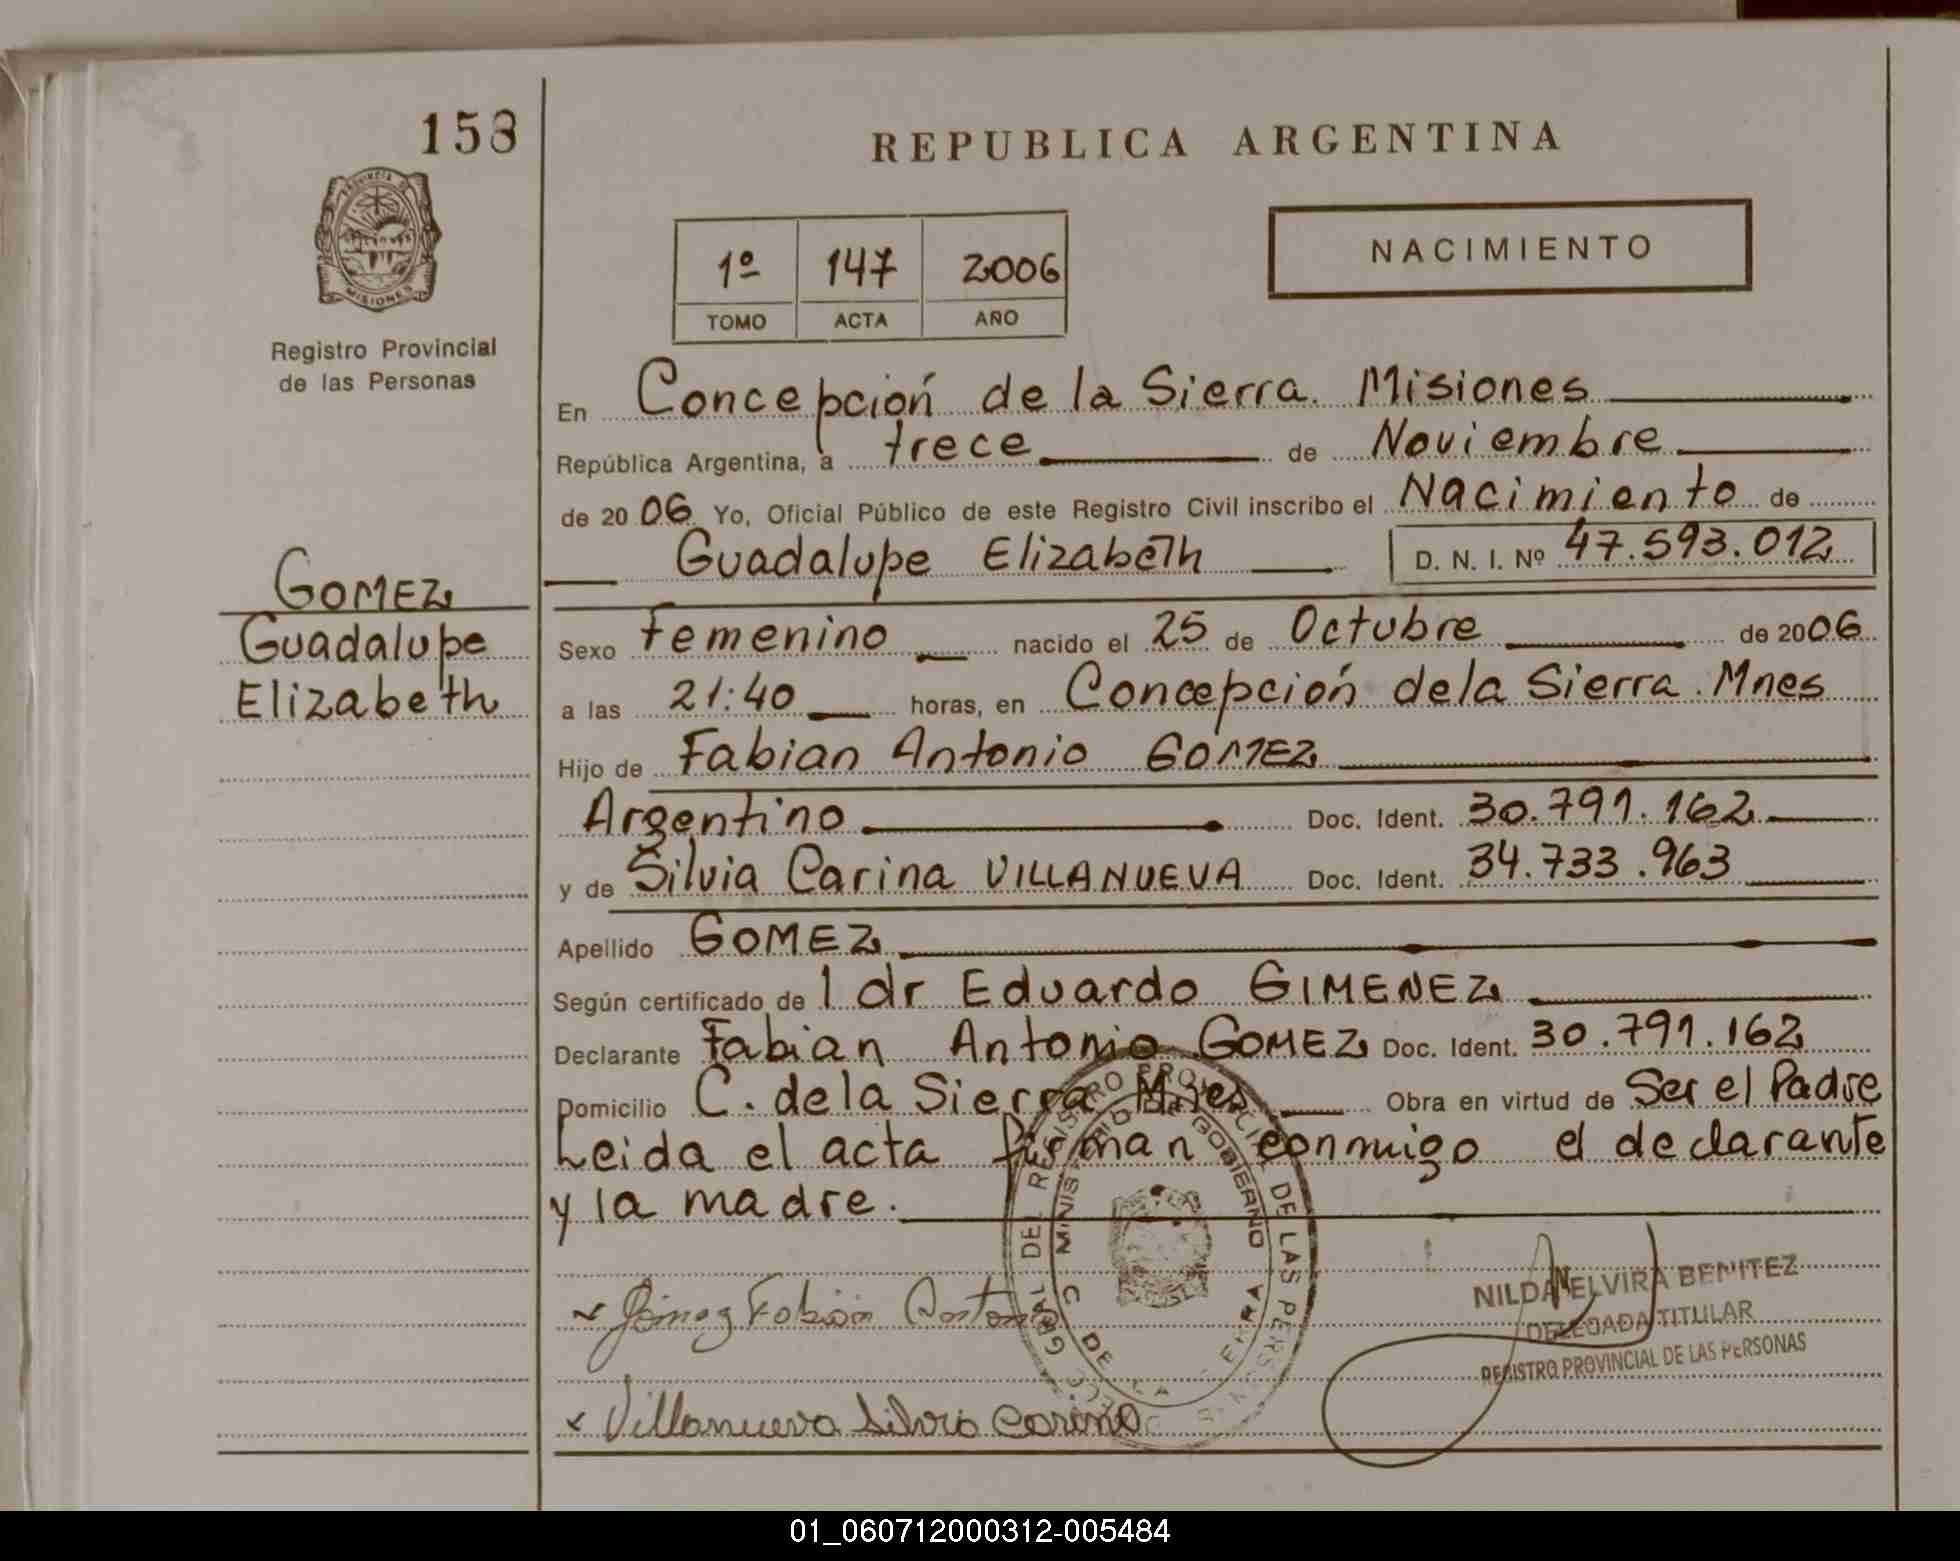 158
REPUBLICA ARGENTINA
PROVINCIA DE
MISIONES
Registro Provincial
de las Personas
1º 147 2006
TOMO ACTA AÑO
NACIMIENTO
En Concepción de la Sierra. Misiones
República Argentina, a trece de Noviembre
de 2006 Yo, Oficial Público de este Registro Civil inscribo el Nacimiento de
Guadalupe Elizabeth D. N. I. Nº 47.593.012
GOMEZ
Guadalupe
Elizabeth
Sexo Femenino nacido el 25 de Octubre de 2006
a las 21:40 horas, en Concepción dela Sierra. Mnes
Hijo de Fabian Antonio GOMEZ
Argentino Doc. Ident. 30.791.162
y de Silvia Carina VILLANUEVA Doc. Ident. 34.733.963
Apellido GOMEZ
Según certificado de l dr Eduardo GIMENEZ
Declarante Fabian Antonio GOMEZ Doc. Ident. 30.791.162
Domicilio C. dela Sierra Mnes Obra en virtud de Ser el Padre
Leida el acta firman conmigo el declarante
y la madre.
DEL REGISTRO PROVINCIAL DE LAS
MINISTERIO DE GOBIERNO
C. DE LA
NILDA ELVIRA BENITEZ
DELEGADA TITULAR
REGISTRO PROVINCIAL DE LAS PERSONAS
x Gómez Fabián Antonio
x Villanueva Silvia Carina
01_060712000312-005484